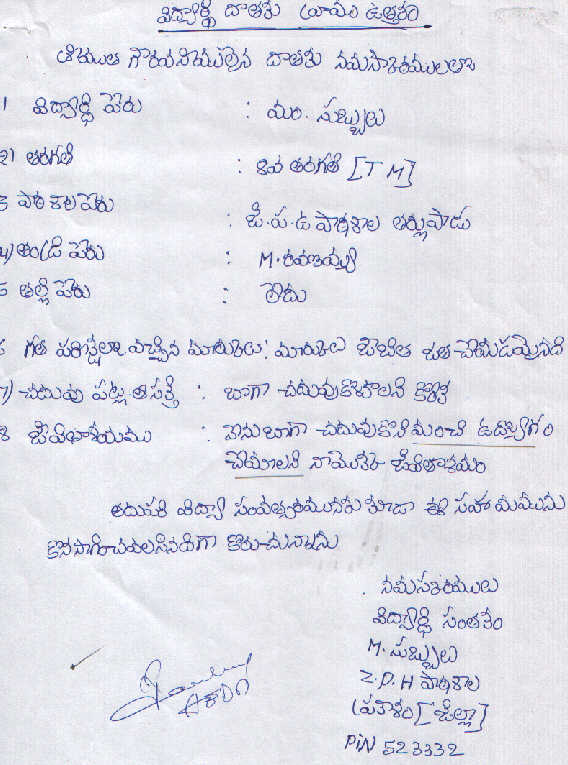 విద్యార్థి దాతకు వ్రాయు ఉత్తరం
శ్రీయుత గౌరవనీయులైన దాతకు నమస్కారములతో
1 విద్యార్థి పేరు : యం. సుబ్బులు
2) తరగతి : 8వ తరగతి [T M]
3 పాఠశాల పేరు : జి.ప.ఉ పాఠశాల తర్లుపాడు
4) తండ్రి పేరు : M. రమణయ్య
5 తల్లి పేరు : లేదు
6 గత పరీక్షలో వచ్చిన మార్కులు: మార్కుల జాబిత జత చేయడమైనది
7) చదువు పట్ల ఆసక్తి : బాగా చదువుకోవాలని కోరిక
8 జీవితాశయము : నేను బాగా చదువుకొని మంచి ఉద్యోగం
చేయాలని నాయొక్క జీవితాశయం
తదుపరి విద్యా సంవత్సరమునకు కూడా ఈ సహాయమును
కొనసాగించవలసినదిగా కోరుచున్నాను
నమస్కారములు
విద్యార్థి సంతకం
M. సుబ్బులు
Z.P.H పాఠశాల
(ప్రకాశం [జిల్లా]
PIN 523332